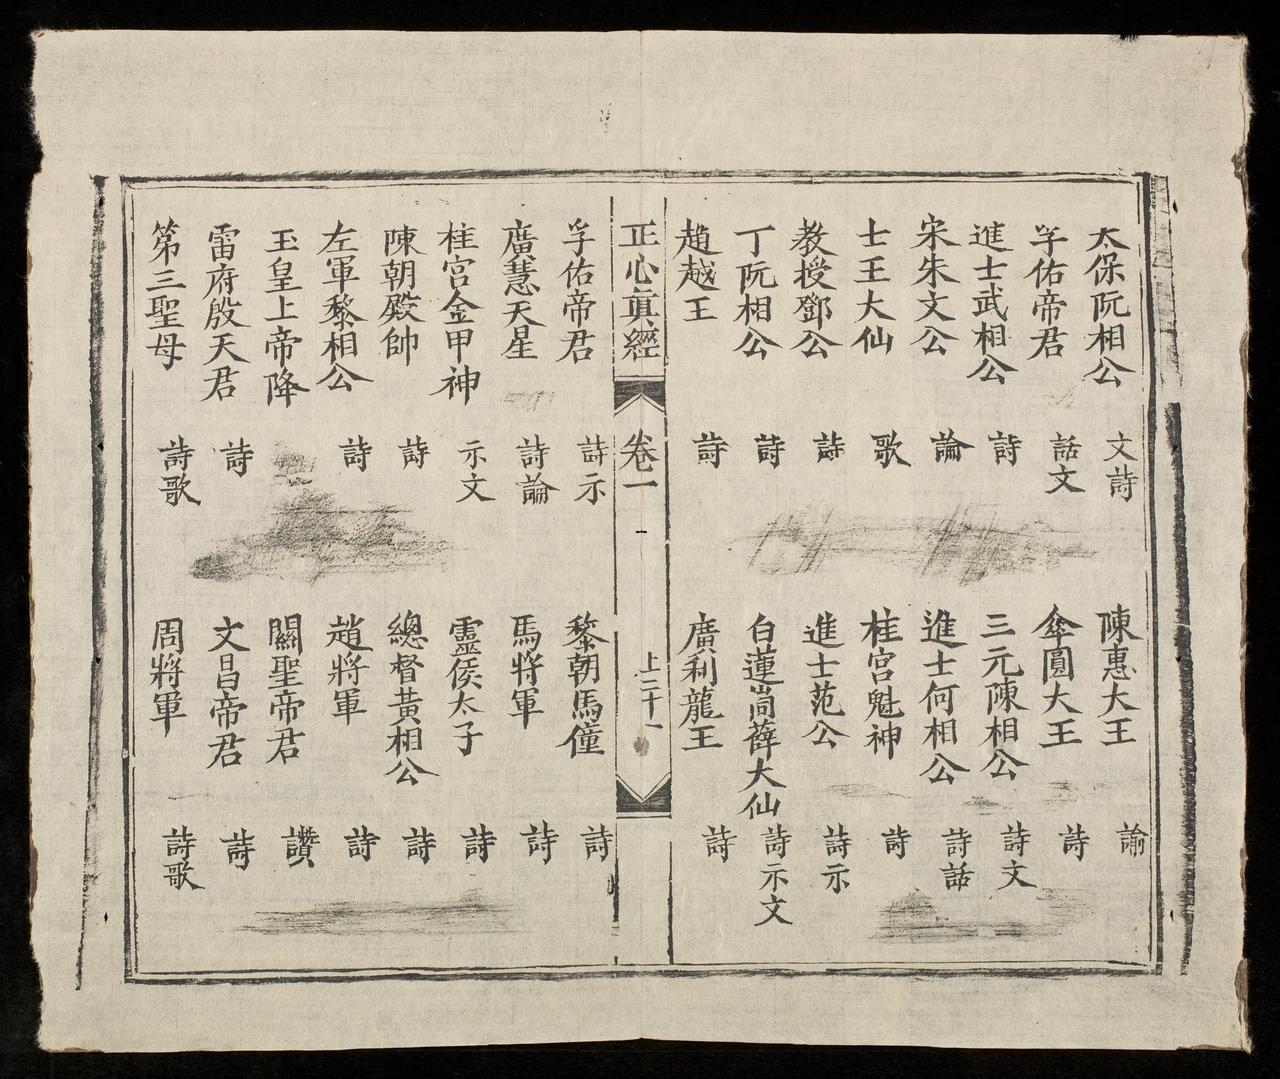 太保阮相公 文詩
孚佑帝君 話文
進士武相公 詩
宋朱文公 論
士王大仙 歌
教授鄧公 詩
丁阮相公 詩
趙越王 詩
陳惠大王 諭
傘圓大王 詩
三元陳相公 詩文
進士何相公 詩話
桂宮魁神 詩
進士范公 詩示
白蓮尚薛大仙 詩示文
廣利龍王 詩
正心真經 卷一 上二十一
孚佑帝君 詩示
廣慧天星 詩論
桂宮金甲神 示文
陳朝殿帥 詩
左軍黎相公 詩
玉皇上帝降
雷府殷天君 詩
第三聖母 詩歌
黎朝馬僮 詩
馬將軍 詩
靈侯太子 詩
總督黃相公 詩
趙將軍 詩
關聖帝君 讚
文昌帝君 詩
周將軍 詩歌